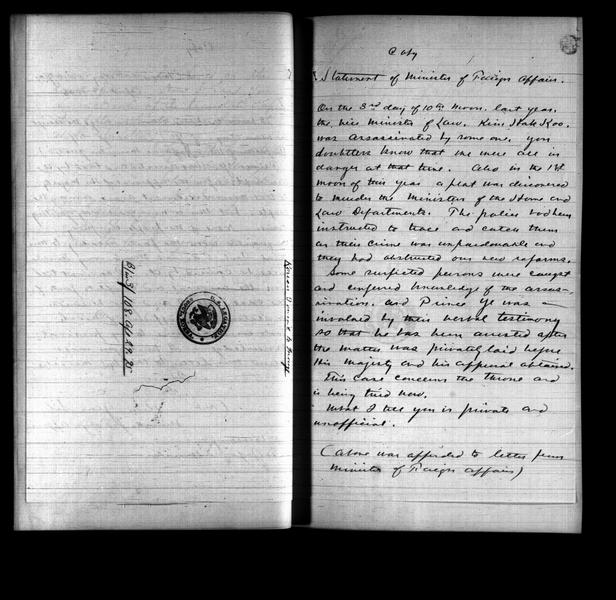 Copy
Statement of Minister of Foreign Affairs.
On the 3rd day of 10th Moon. last year.
the vice Minister of Law. Kim Hak Koo.
was assassinated by some one. you
doubtless know that we were all in
danger at that time. Also in the 1st
moon of this year a plot was discovered
to murder the Ministers of the Home and
Law Departments. The police
instructed to trace and catch them
as their crime was unpardonable and
they had obstructed our new reforms.
Some suspected persons were caught
and confessed knowledge of the assas-
sination. and Prince Ye was
involved by their verbal testimony
so that he has been arrested after
the matter was privately laid before
His Majesty and his approval obtained.
This case concerns the Throne and
is being tried now.
What I tell you is private and
unofficial.
(above was appended to letter from
Minister of Foreign Affairs)